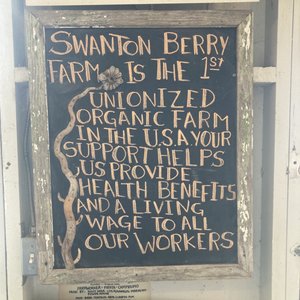 SWANTON BERRY
FARM IS THE 1ST
UNIONIZED
ORGANIC FARM
IN THE U.S.A. YOUR
SUPPORT HELPS
US PROVIDE
HEALTH BENEFITS
AND A LIVING
WAGE TO ALL
OUR WORKERS